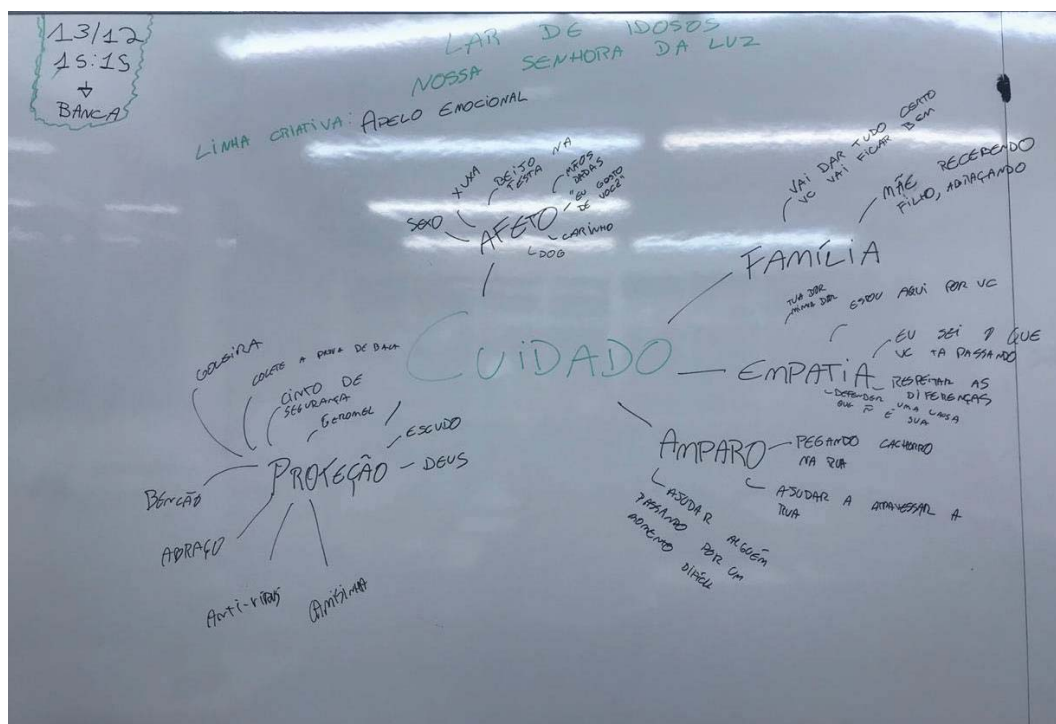 13/12
15:15
BANCA
LAR DE IDOSOS
NOSSA SENHORA DA LUZ
LINHA CRIATIVA: APELO EMOCIONAL
CUIDADO
AFETO
SEXO
XUXA
BEIJO NA
TESTA
MÃOS
DADAS
"EU GOSTO
DE VOCÊ"
CARINHO
DOG
FAMÍLIA
VAI DAR TUDO CERTO
VC VAI FICAR BEM
MÃE RECEBENDO
FILHO, ABRAÇANDO
EMPATIA
TUA DOR
MINHA DOR
ESTOU AQUI POR VC
EU SEI O QUE
VC TA PASSANDO
RESPEITAR AS
DIFERENÇAS
DEFENDER UMA CAUSA
QUE Ñ É SUA
AMPARO
PEGANDO CACHORRO
NA RUA
AJUDAR A ATRAVESSAR A
RUA
AJUDAR ALGUÉM
PASSANDO POR UM
MOMENTO DIFÍCIL
PROTEÇÃO
GOLEIRA
COLETE A PROVA DE BALA
CINTO DE
SEGURANÇA
GEROMEL
ESCUDO
DEUS
BENÇÃO
ABRAÇO
ANTI-VÍRUS
CAMISINHA